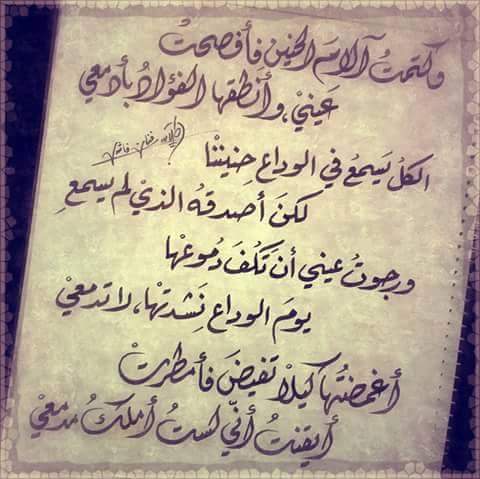 وكتمتُ آلامَ الحنين فأفصحتْ
عَينيْ، وأنطقها الفؤادُ بأدمعي
الكلُ يَسمعُ في الوداع حِنيننْا
لكنَ أصدقهُ الذيْ لم يسمعِ
ورجوتُ عيني أن تَكُفَ دُموعْها
يومَ الوداع نَشدتْها، لا تدمعيْ
أغمضتُها كيلاْ تفيضَ فأمطرتْ
أيقنتُ أنّي لستُ أملكُ مدمعيْ